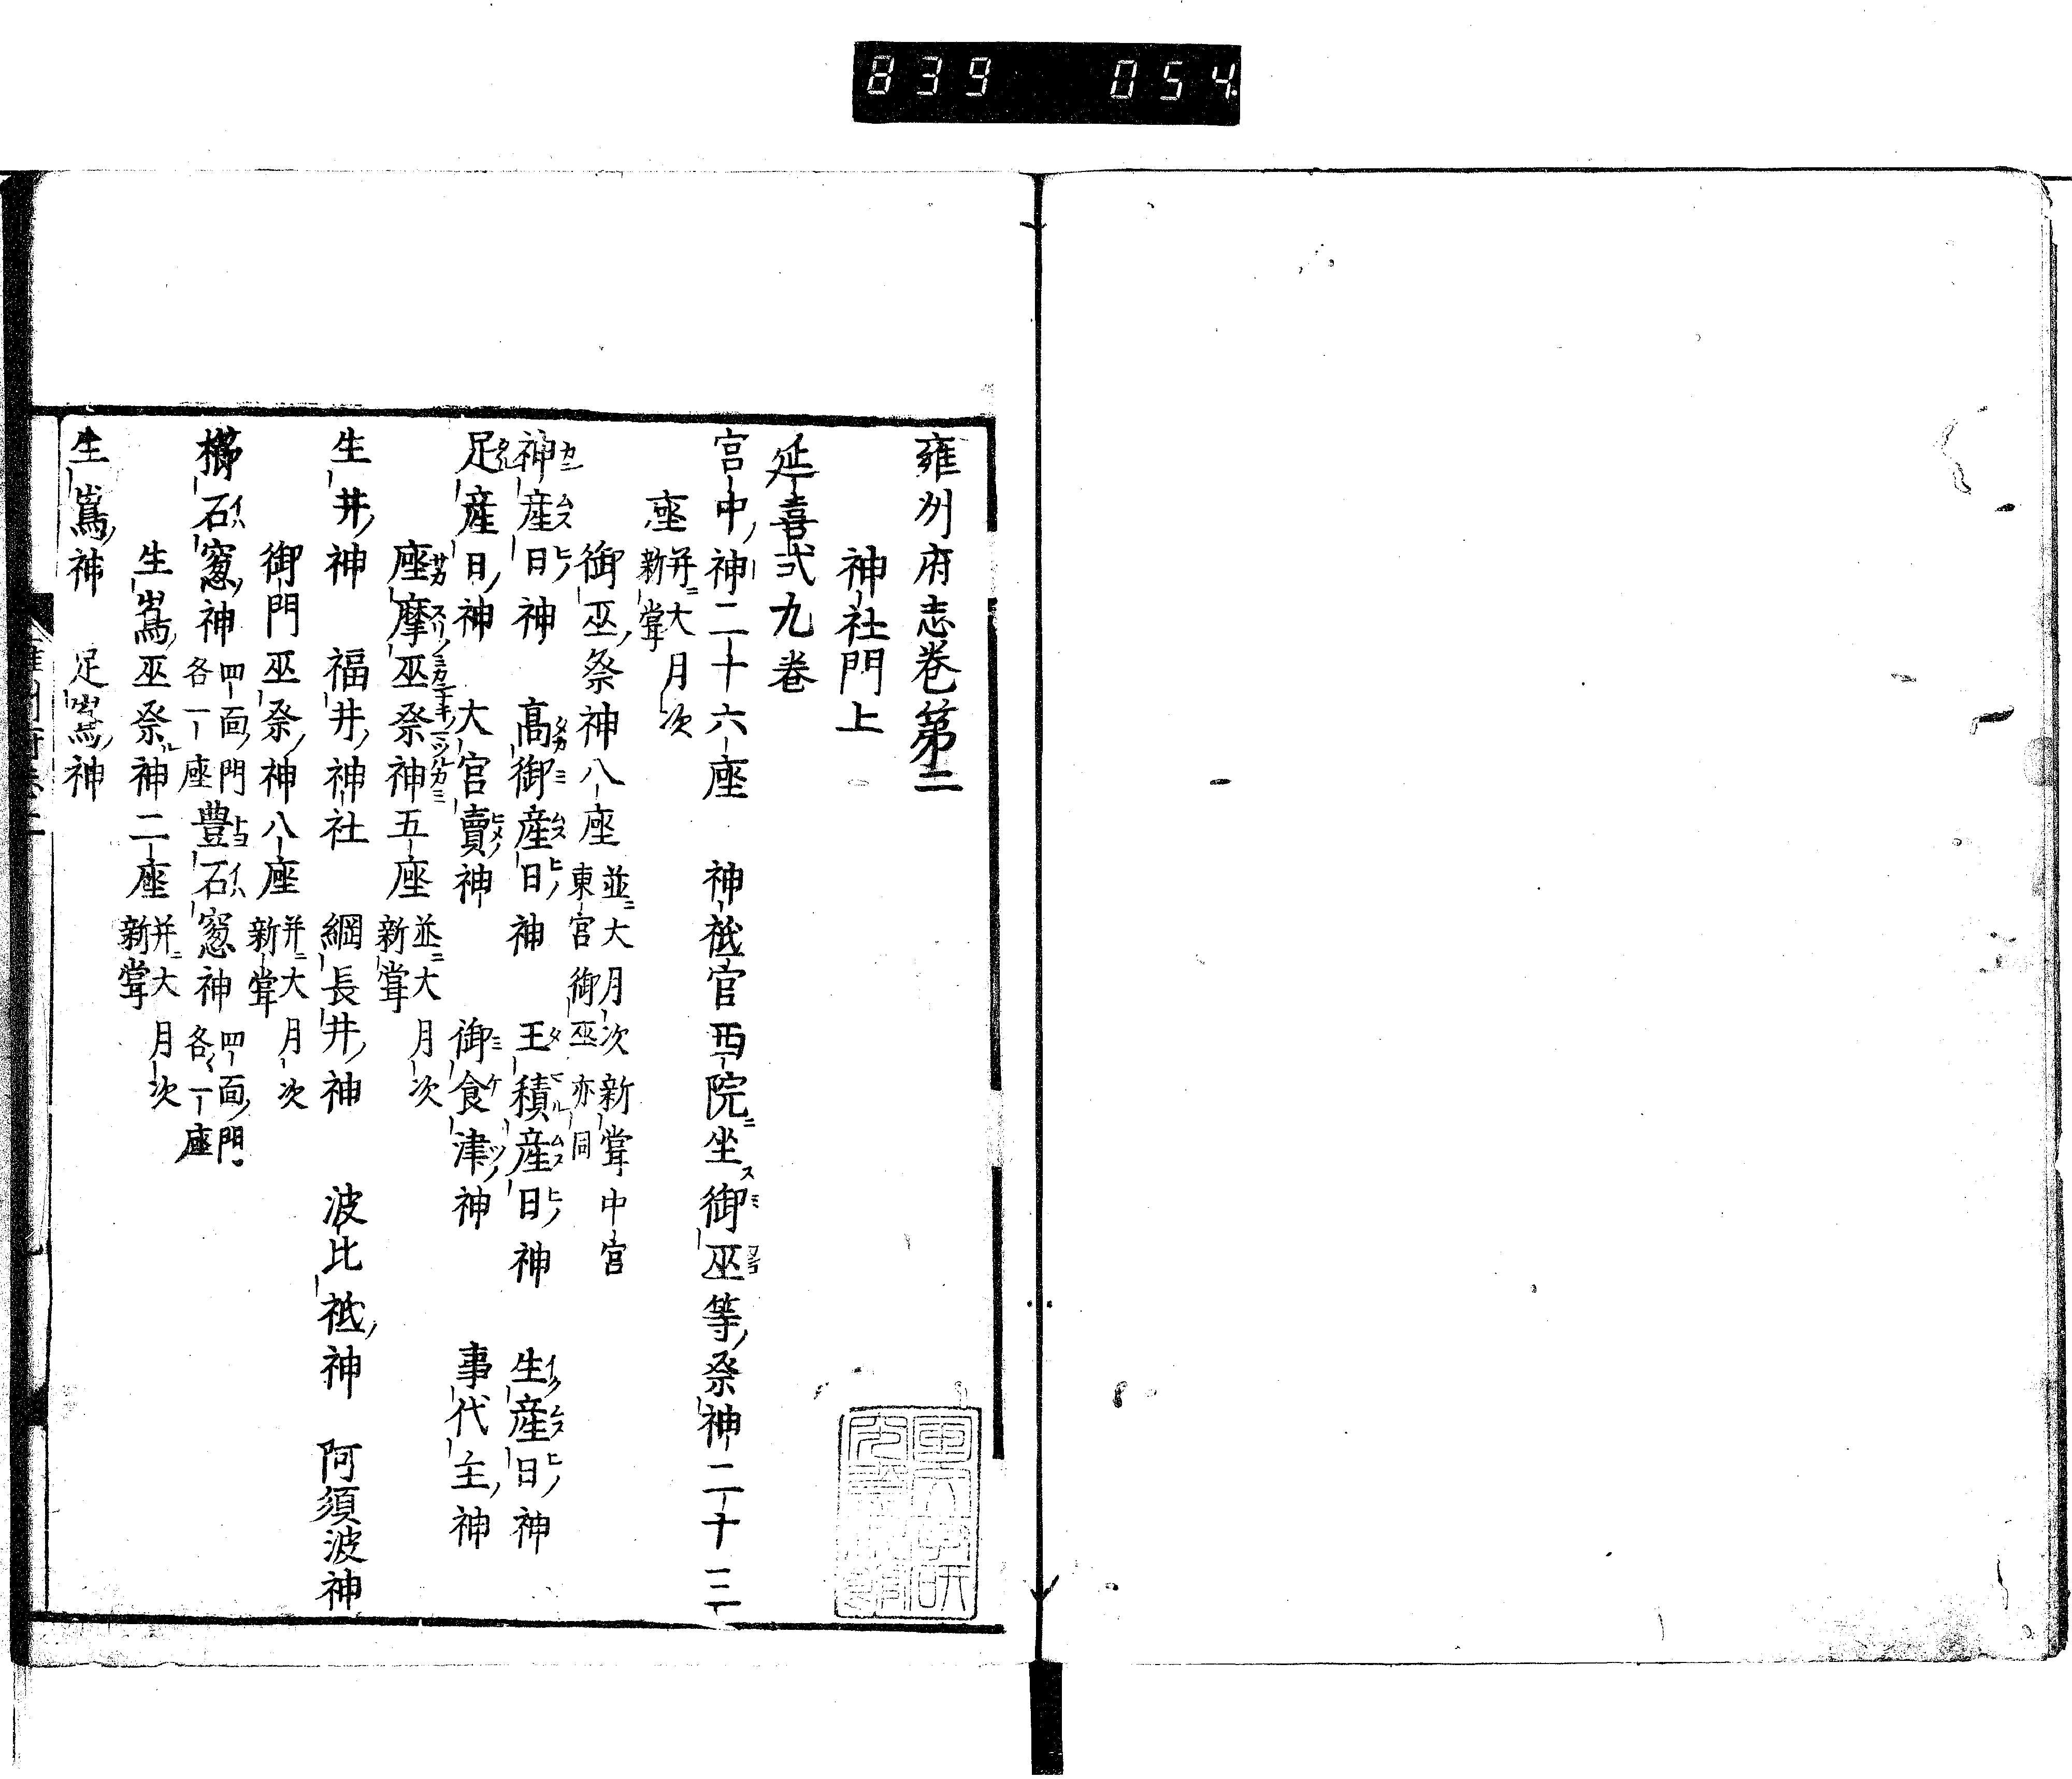 839 054
雍州府志巻第二
神社門上
延喜式九巻
宮中神二十六座 神祇官西院坐御巫等祭神二十三
座 并大月次新嘗
御巫祭神八座 並大月次新嘗中宮東宮御巫亦同
神産日神 高御産日神 王積産日神 生産日神
足産日神 大宮賣神 御食津神 事代主神
座摩巫祭神五座 並大月次新嘗
生井神 福井神社 綱長井神 波比祇神 阿須波神
御門巫祭神八座 并大月次新嘗
櫛石窓神 四面門各一座 豊石窓神 四面門各一座
生嶌巫祭神二座 并大月次新嘗
生嶌神 足嶌神